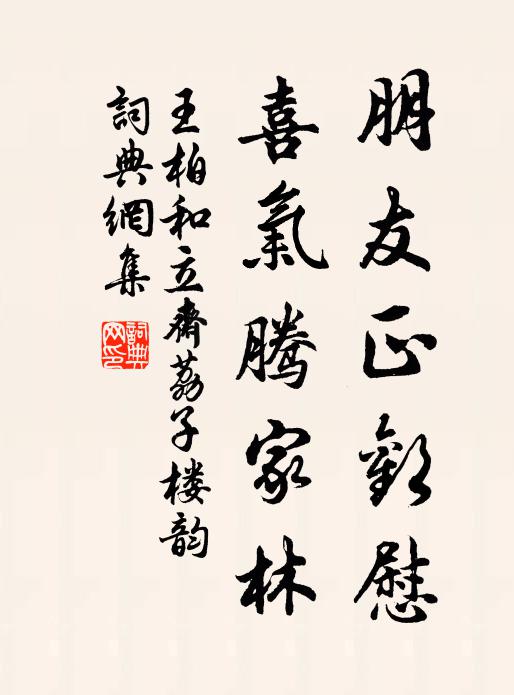 朋友正歡慰
喜氣騰家林
王柏和立齋荔子楼韵
詞典網集
詞典网印